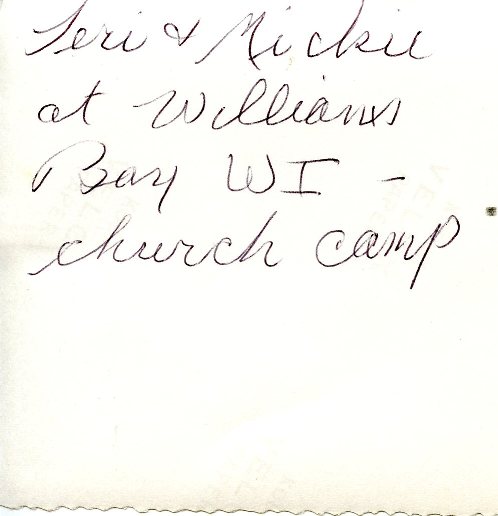 Teri & Mickie
at Williams
Bay WI -
church camp